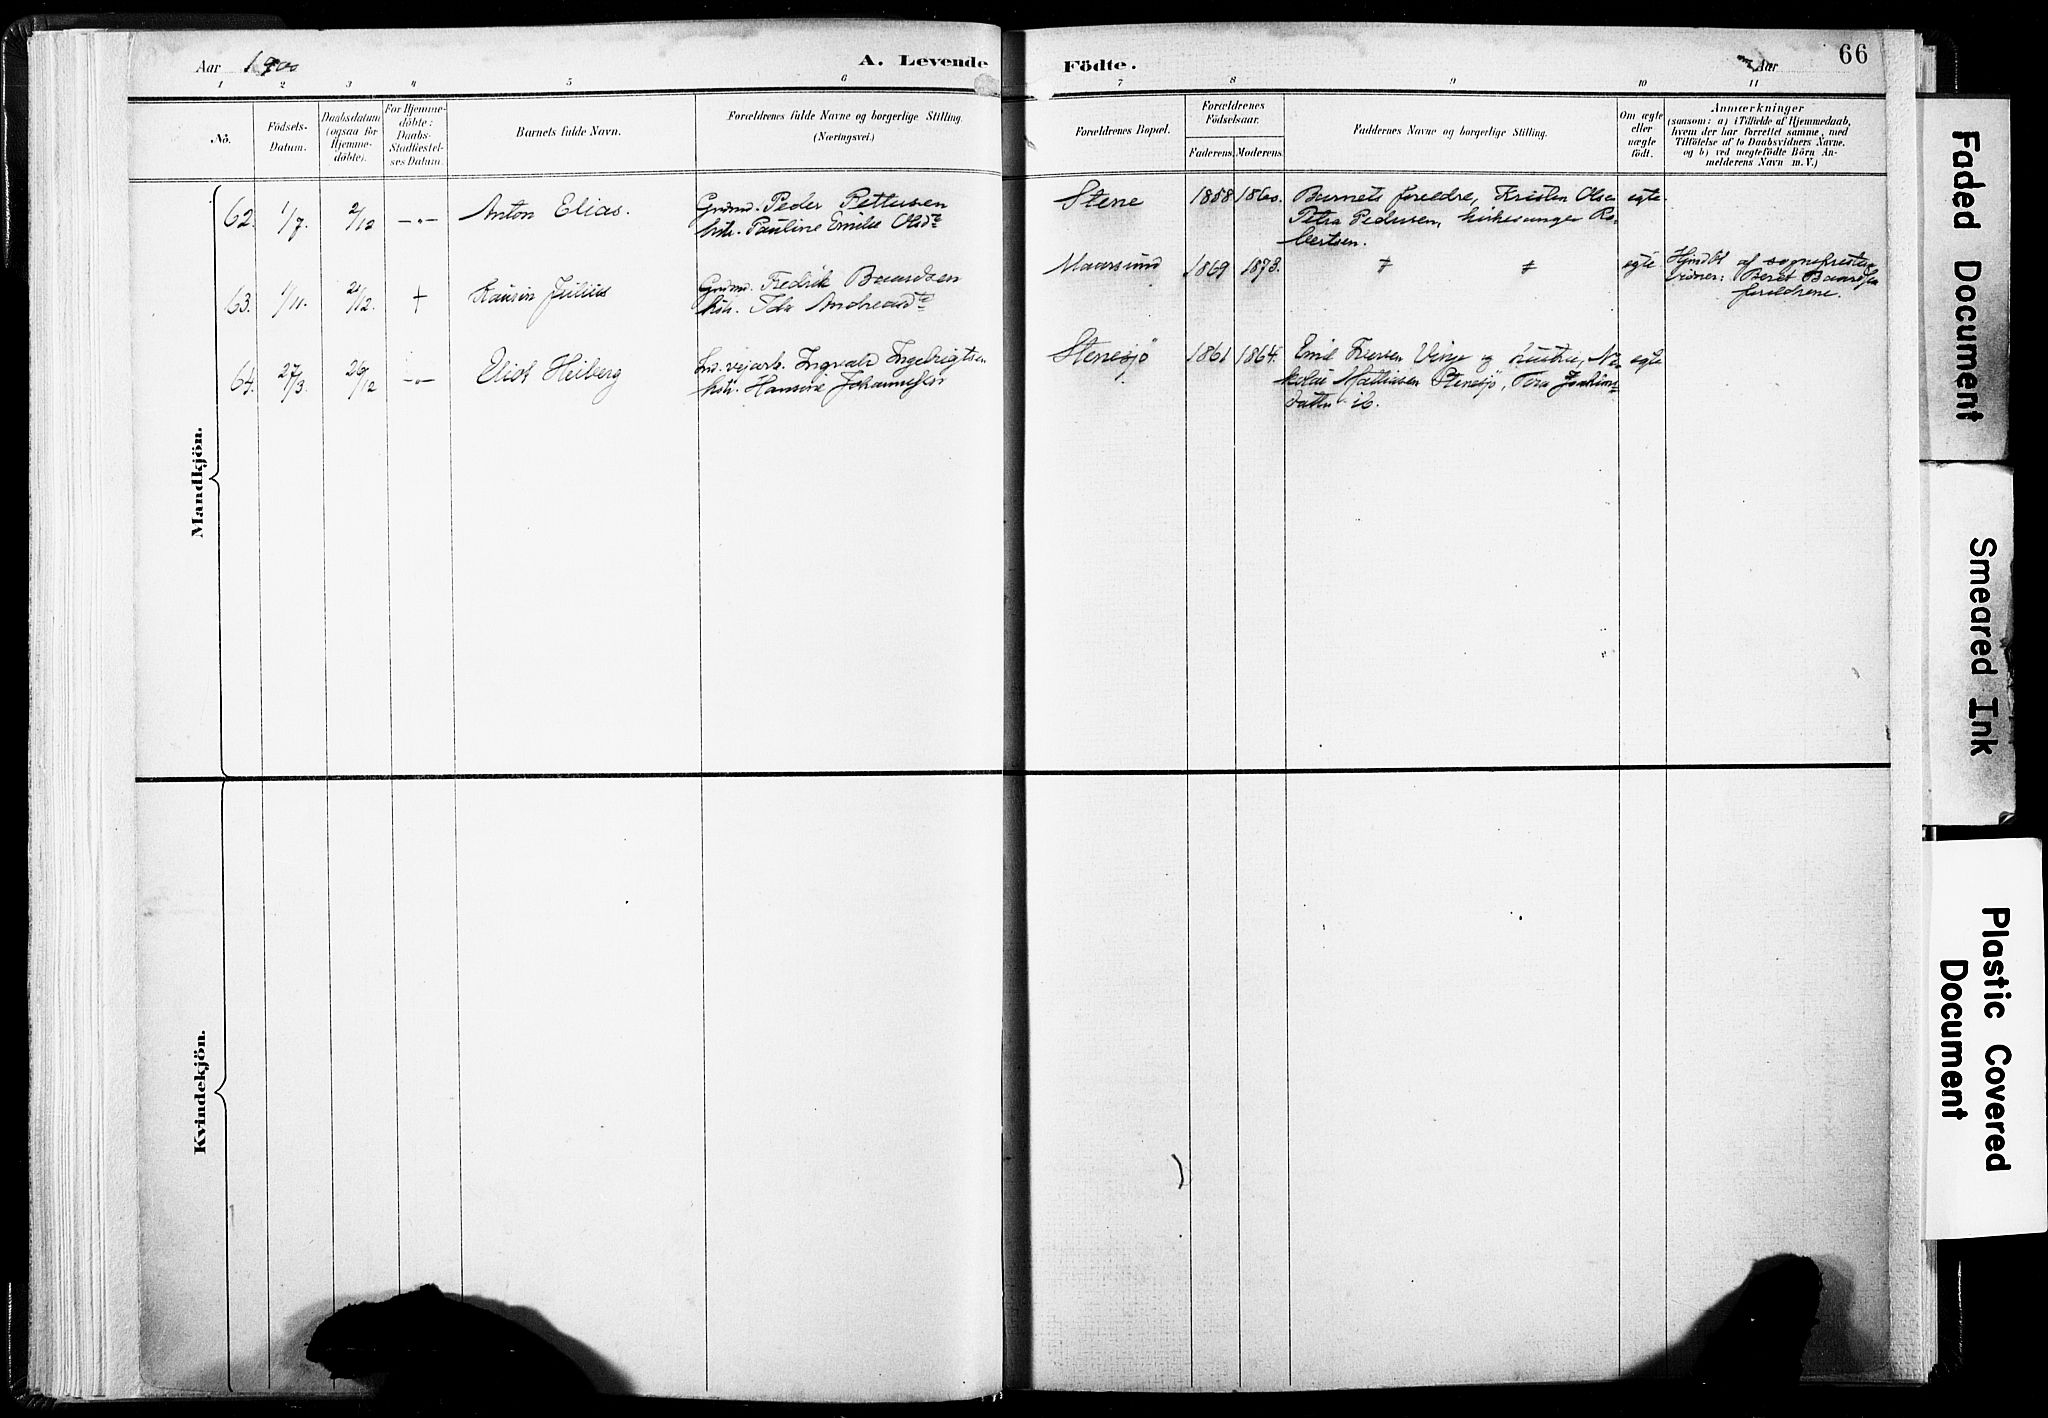 Aar 1900
A. Levende Födte.
Aar
66
1 2 3 4 5 6 7 8 9 10 11
No.
Födsels-
Datum.
Daabsdatum
(ogsaa for
Hjemme-
döbte).
For Hjemme-
döbte:
Daabs-
Stadfæstel-
ses Datum.
Barnets fulde Navn.
Forældrenes fulde Navne og borgerlige Stilling.
(Næringsvei.)
Forældrenes Bopæl.
Forældrenes
Födselsaar.
Faderens. Moderens.
Faddernes Navne og borgerlige Stilling.
Om ægte
eller
uægte
födt.
Anmærkninger
(saasom: a) i Tilfælde af Hjemmedaab,
hvem der har forrettet samme, med
Tilföielse af to Daabsvidners Navne.
og b) ved uægtefödte Börn An-
melderens Navn m. V.)
Mandkjön.
62. 1/7. 2/12 -"- Anton Elias.
Grdmd. Peder Pettersen
hstr. Pauline Emilie Olsdtr
Stene 1858 1860.
Barnets foreldre, Kristen Olsen
Petra Pedersen, kirkesanger Ro-
bertsen.
egte.
63. 1/11. 2/12. + Julius
Grdmd. Fredrik Baardsen
hstr. Ida Andreasdtr
Maarsund 1869 1873.
egte
Hjmdbt af sogneprestens
Beret
foreldrene.
64. 27/3. 26/12 -"- Heiberg
Ind. vejarb. Ingvald Ingebrigtsen
hstr. Hansine
Stenesjö 1861 1864.
Emil og hustru, Ni-
kolai Mathiasen Stenesjö,
datter ib.
egte
Kvindekjön.
Faded Document
Smeared Ink
Plastic Covered
Document